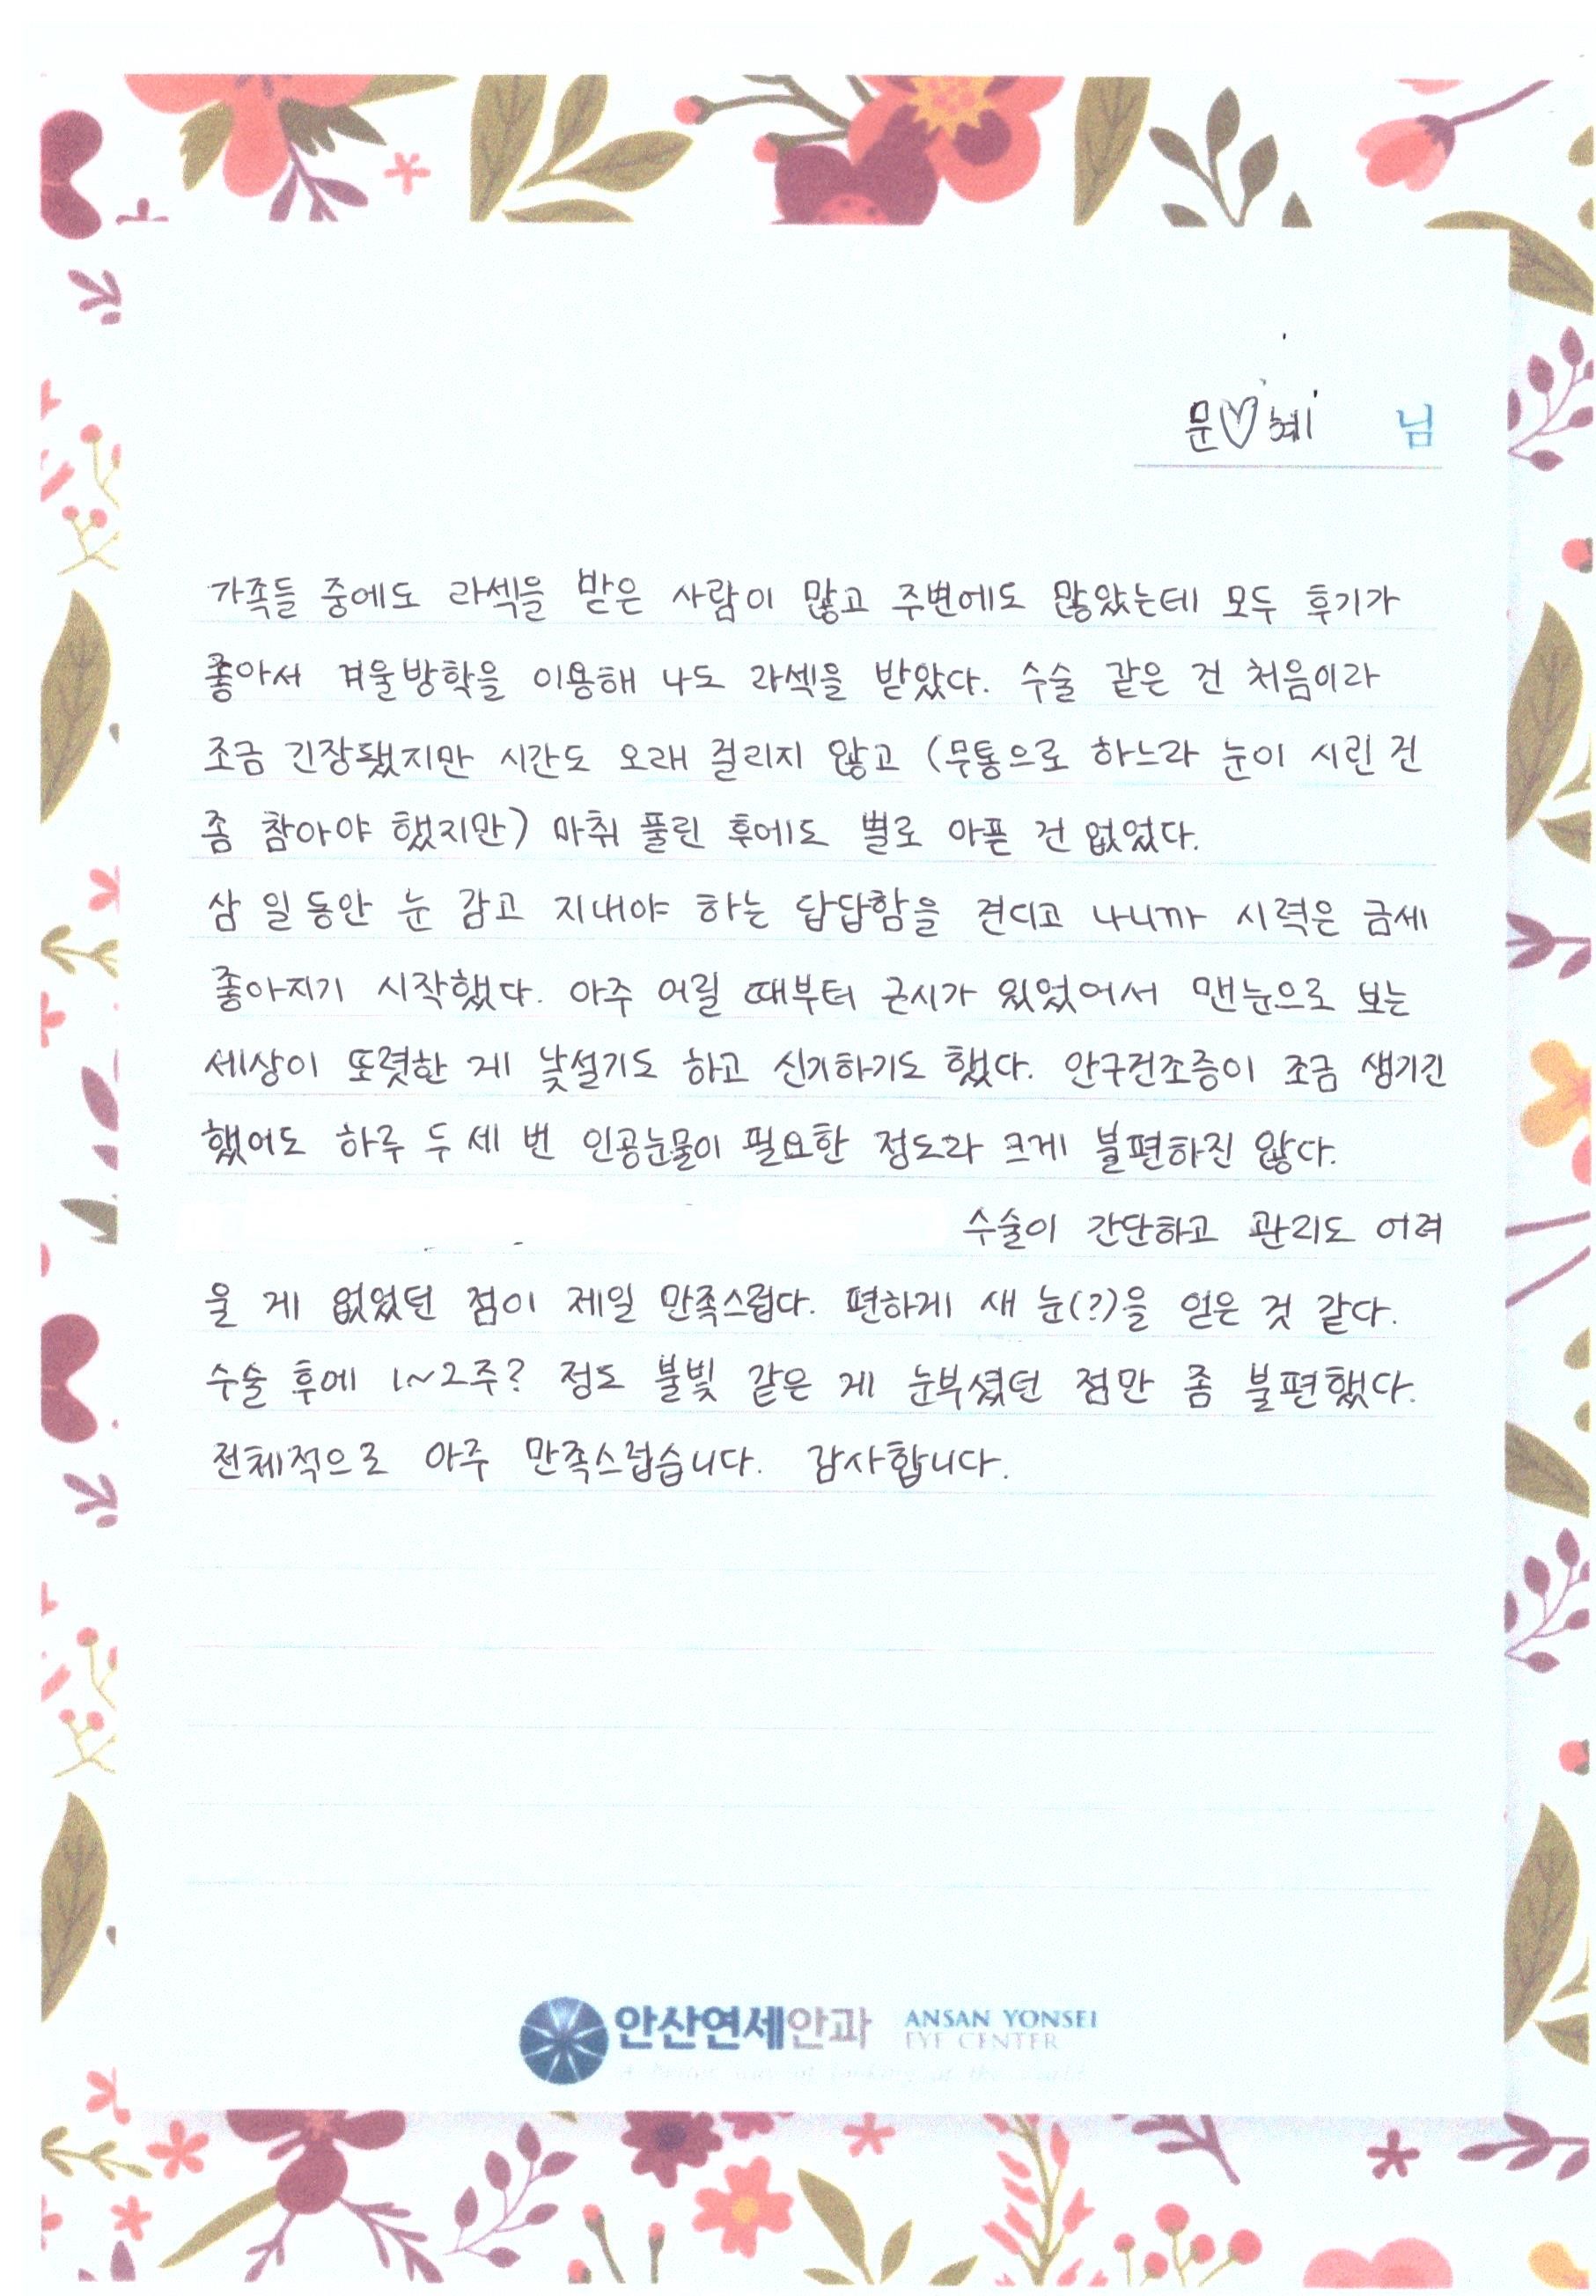 문♡혜 님
가족들 중에도 라섹을 받은 사람이 많고 주변에도 많았는데 모두 후기가
좋아서 겨울방학을 이용해 나도 라섹을 받았다. 수술 같은 건 처음이라
조금 긴장됐지만 시간도 오래 걸리지 않고 (무통으로 하느라 눈이 시린 건
좀 참아야 했지만) 마취 풀린 후에도 별로 아픈 건 없었다.
삼 일 동안 눈 감고 지내야 하는 답답함을 견디고 나니까 시력은 금세
좋아지기 시작했다. 아주 어릴 때부터 근시가 있었어서 맨눈으로 보는
세상이 또렷한 게 낯설기도 하고 신기하기도 했다. 안구건조증이 조금 생기긴
했어도 하루 두 세 번 인공눈물이 필요한 정도라 크게 불편하진 않다.
수술이 간단하고 관리도 어려
울 게 없었던 점이 제일 만족스럽다. 편하게 새 눈(?)을 얻은 것 같다.
수술 후에 1~2주? 정도 불빛 같은 게 눈부셨던 점만 좀 불편했다.
전체적으로 아주 만족스럽습니다. 감사합니다.
안산연세안과 ANSAN YONSEI
EYE CENTER